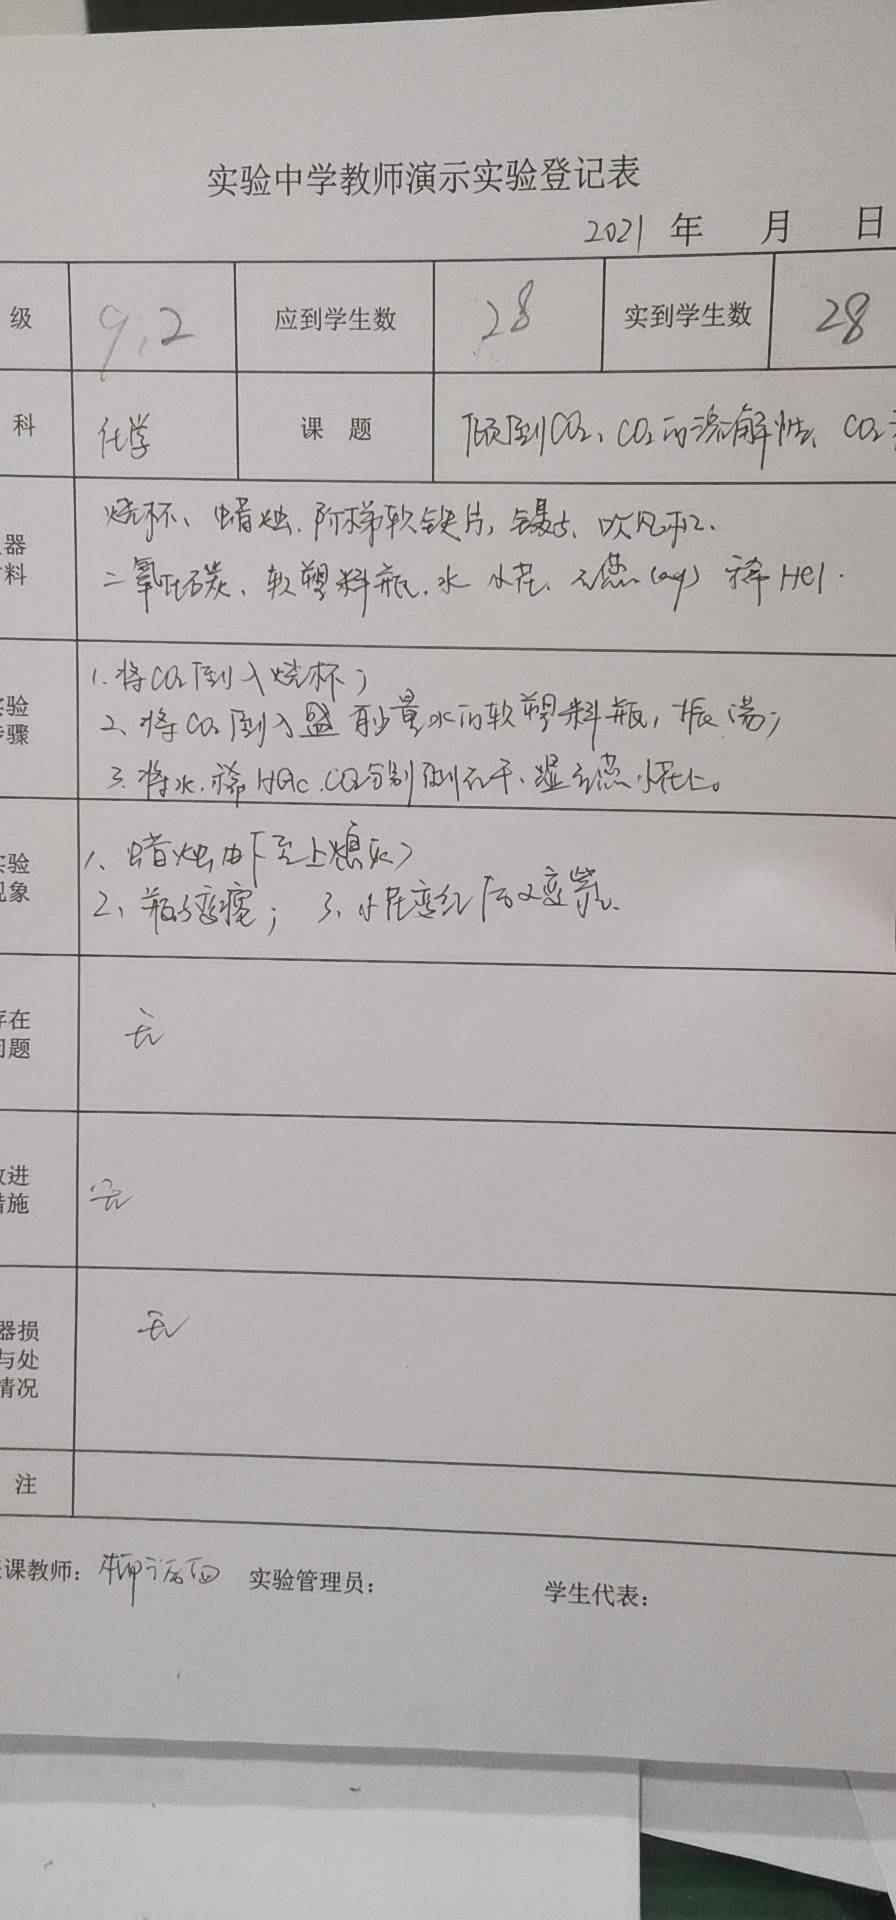 实验中学教师演示实验登记表
2021 年 月 日
级 9.2 应到学生数 28 实到学生数 28
科 化学 课 题 倾倒CO2、CO2的溶解性、CO2
器
料
烧杯、蜡烛、阶梯软铁片,镊子、吹风机、
二氧化碳、软塑料瓶、水 小花、石蕊(aq) 稀HCl.
验
骤
1.将CO2倒入烧杯;
2、将CO2倒入盛有少量水的软塑料瓶,振荡;
3.将水.稀HAc.CO2分别倒在干、湿石蕊小花上。
验
象
1、蜡烛由下至上熄灭;
2、瓶子变瘪; 3、小花变红后又变紫。
存在
问题
无
改进
措施
无
器损
与处
情况
无
注
课教师: 实验管理员: 学生代表: